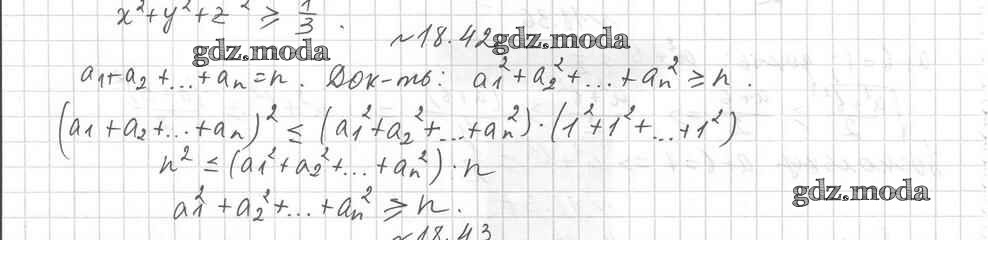 x²+y²+z² ⩾ 1/3.
~18.42 gdz.moda
gdz.moda
a₁+a₂+...+aₙ=n. Док-ть: a₁²+a₂²+...+aₙ² ≥ n.
(a₁+a₂+...+aₙ)² ≤ (a₁²+a₂²+...+aₙ²)·(1²+1²+...+1²)
n² ≤ (a₁²+a₂²+...+aₙ²)·n
gdz.moda
a₁²+a₂²+...+aₙ² ⩾ n.
~18.43